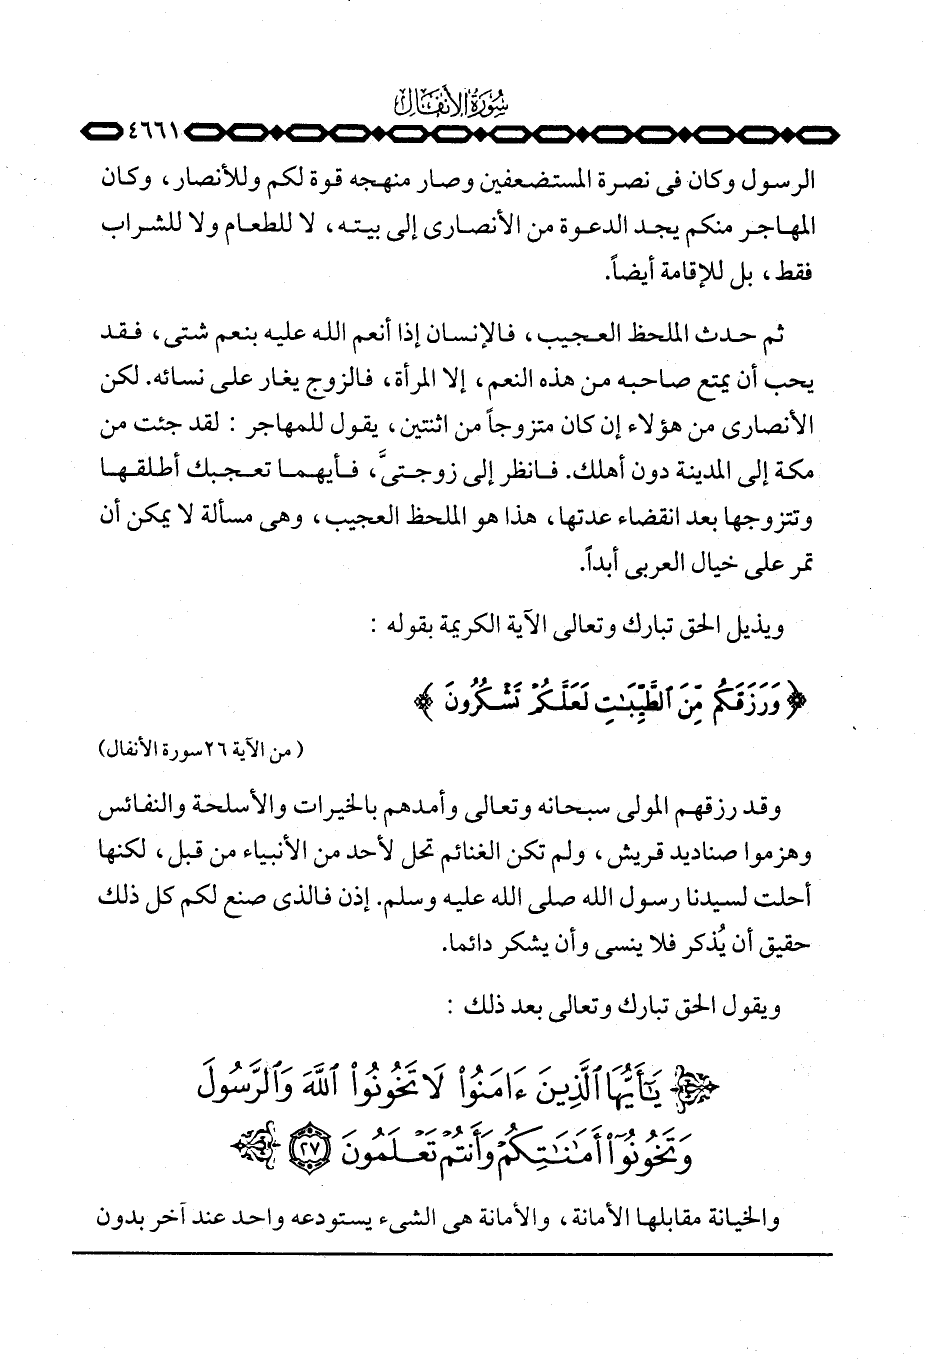 سورة الأنفال
٤٦٦١
الرسول وكان فى نصرة المستضعفين وصار منهجه قوة لكم وللأنصار، وكان
المهاجر منكم يجد الدعوة من الأنصارى إلى بيته، لا للطعام ولا للشراب
فقط، بل للإقامة أيضاً.
ثم حدث الملحظ العجيب، فالإنسان إذا أنعم الله عليه بنعم شتى، فقد
يحب أن يمتع صاحبه من هذه النعم، إلا المرأة، فالزوج يغار على نسائه. لكن
الأنصارى من هؤلاء إن كان متزوجاً من اثنتين، يقول للمهاجر : لقد جئت من
مكة إلى المدينة دون أهلك. فانظر إلى زوجتىَّ، فأيهما تعجبك أطلقها
وتتزوجها بعد انقضاء عدتها، هذا هو الملحظ العجيب، وهى مسألة لا يمكن أن
تمر على خيال العربى أبداً.
ويذيل الحق تبارك وتعالى الآية الكريمة بقوله :
﴿ وَرَزَقَكُم مِّنَ ٱلطَّيِّبَٰتِ لَعَلَّكُمْ تَشْكُرُونَ ﴾
( من الآية ٢٦ سورة الأنفال)
وقد رزقهم المولى سبحانه وتعالى وأمدهم بالخيرات والأسلحة والنفائس
وهزموا صناديد قريش، ولم تكن الغنائم تحل لأحد من الأنبياء من قبل، لكنها
أحلت لسيدنا رسول الله صلى الله عليه وسلم. إذن فالذى صنع لكم كل ذلك
حقيق أن يُذكر فلا ينسى وأن يشكر دائما.
ويقول الحق تبارك وتعالى بعد ذلك :
يَٰٓأَيُّهَا ٱلَّذِينَ ءَامَنُوا۟ لَا تَخُونُوا۟ ٱللَّهَ وَٱلرَّسُولَ
وَتَخُونُوٓا۟ أَمَٰنَٰتِكُمْ وَأَنتُمْ تَعْلَمُونَ ٢٧
والخيانة مقابلها الأمانة، والأمانة هى الشىء يستودعه واحد عند آخر بدون